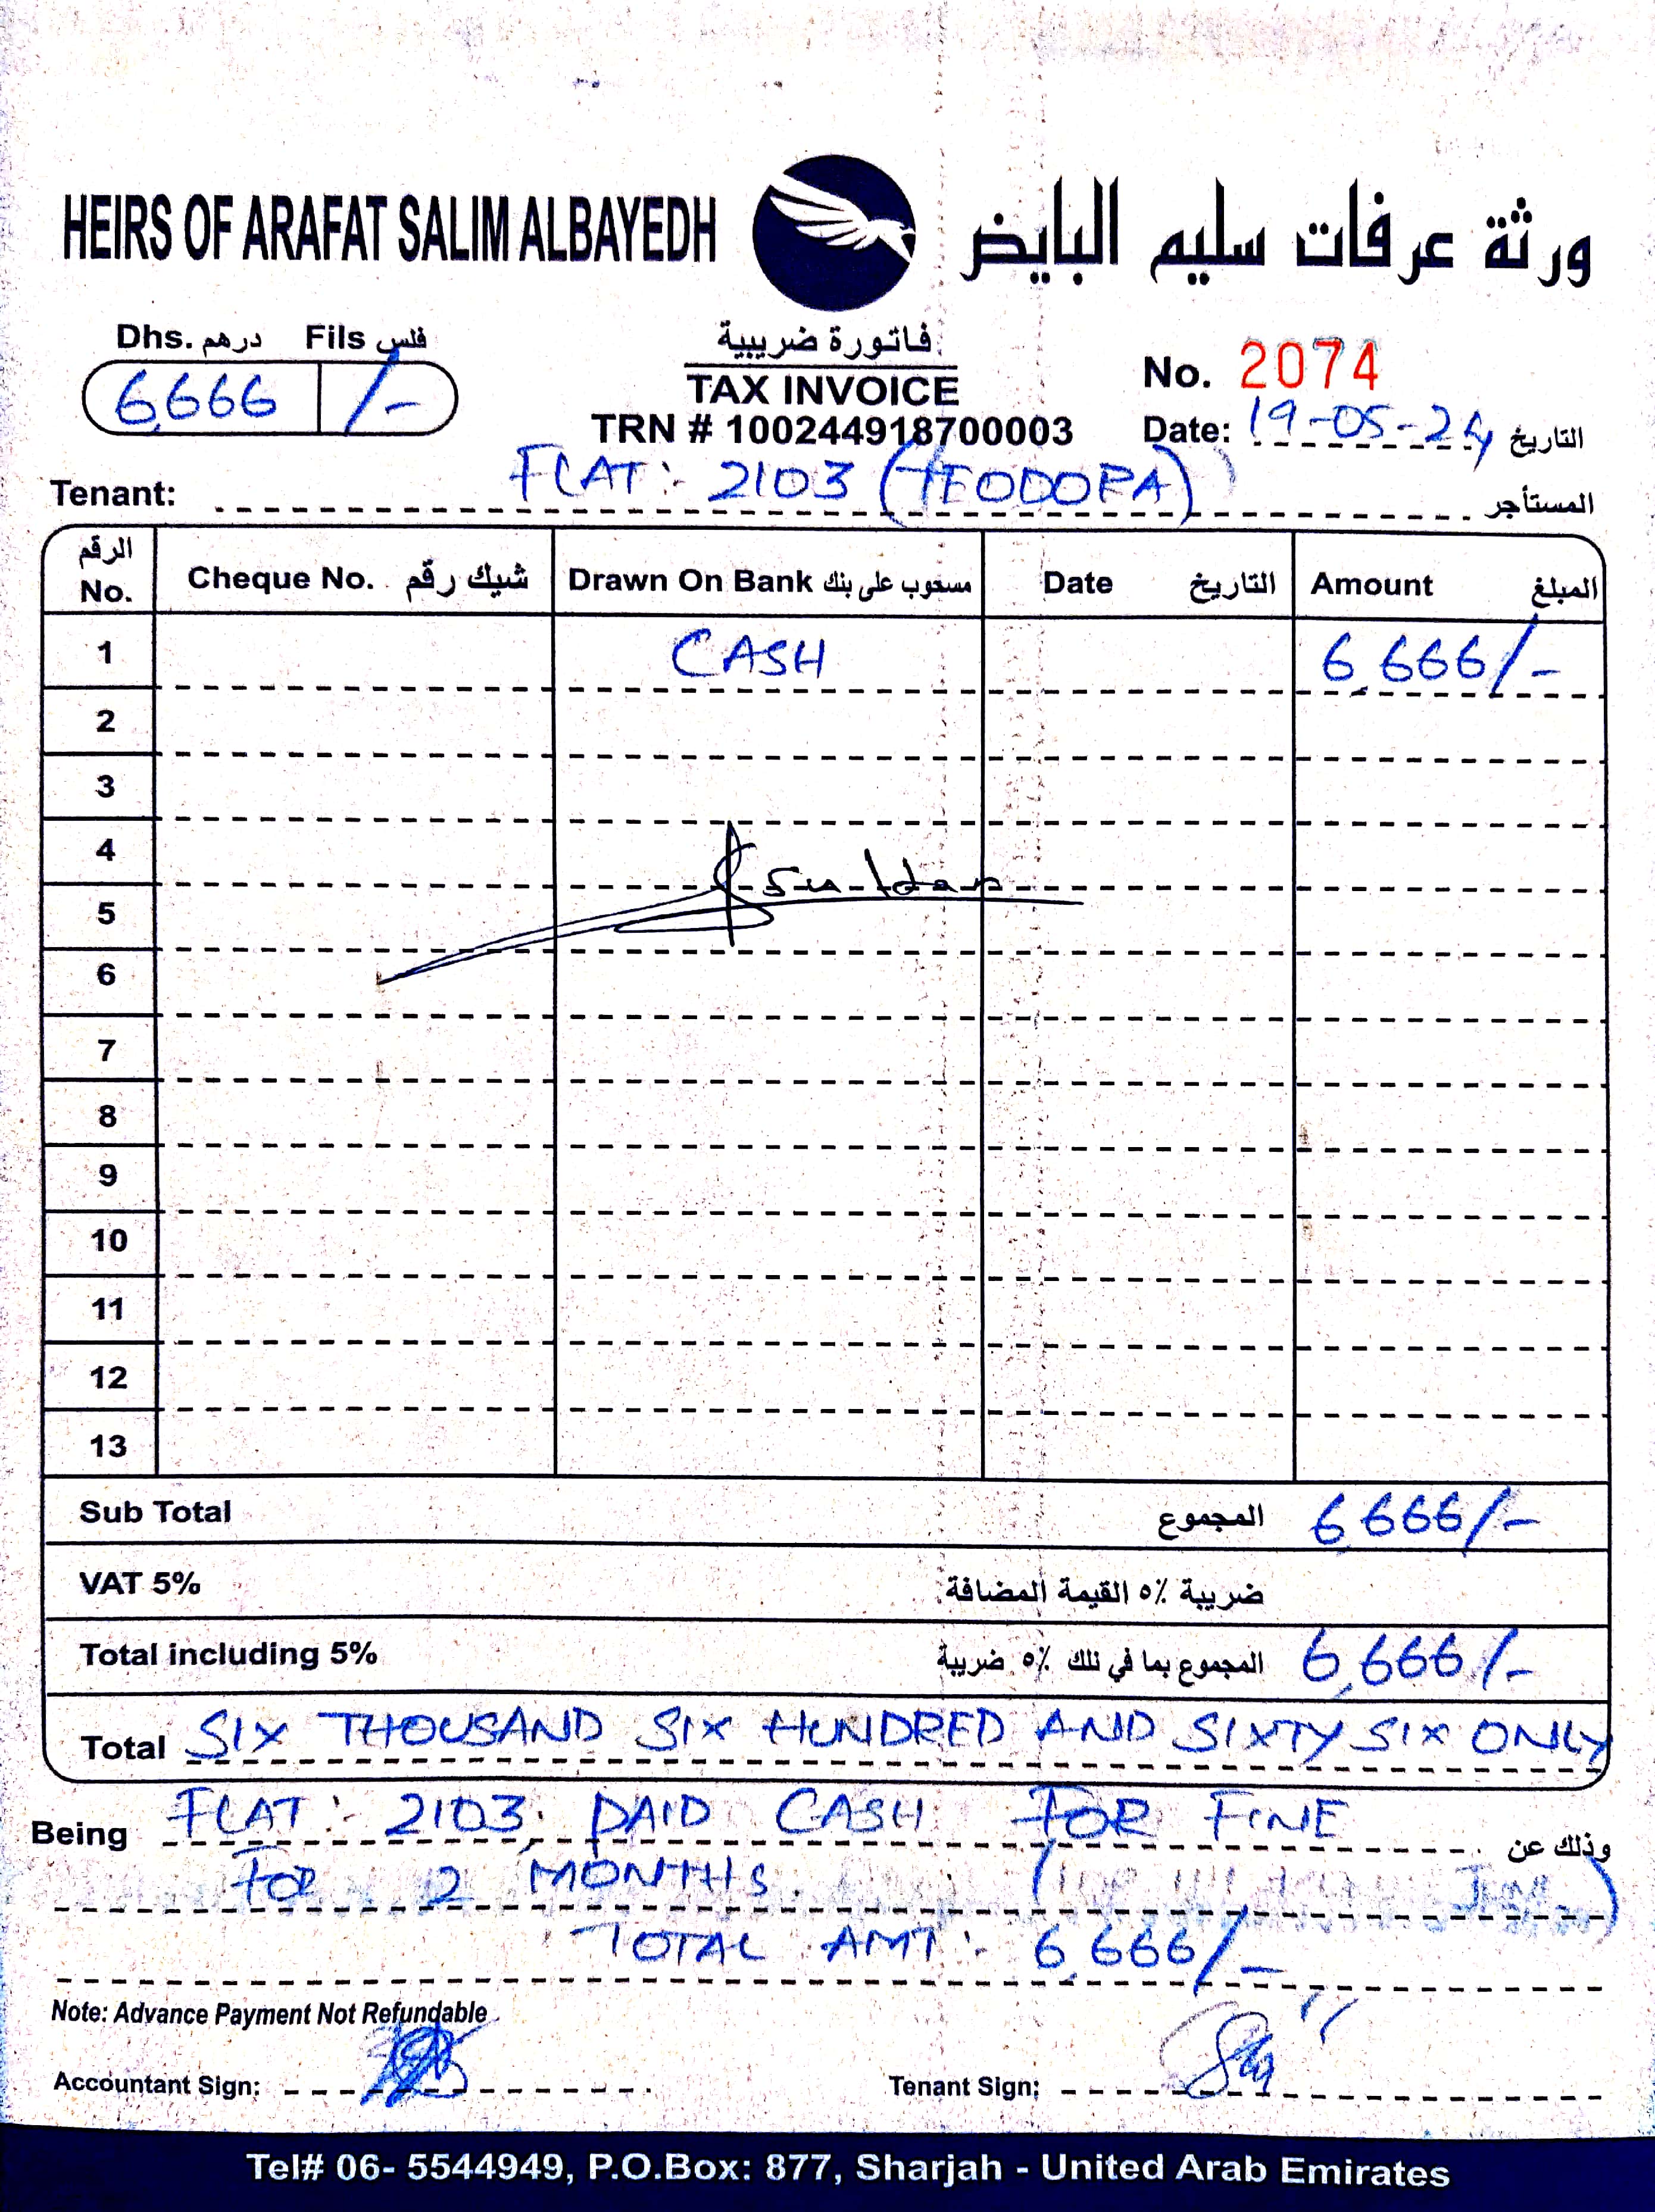 HEIRS OF ARAFAT SALIM ALBAYEDH ورثة عرفات سليم البايض
Dhs. درهم Fils فلس
6,666 /-
فاتورة ضريبية
TAX INVOICE
TRN # 100244918700003
No. 2074
Date: 19-05-24 التاريخ
Tenant: FLAT :- 2103 (TEODORA) المستأجر
الرقم No. Cheque No. شيك رقم Drawn On Bank مسحوب على بنك Date التاريخ Amount المبلغ
1 CASH 6,666/-
2
3
4
5
6
7
8
9
10
11
12
13
Sub Total المجموع 6,666/-
VAT 5% ضريبة ٥٪ القيمة المضافة
Total including 5% المجموع بما في ذلك ٥٪ ضريبة 6,666/-
Total SIX THOUSAND SIX HUNDRED AND SIXTY SIX ONLY
Being FLAT :- 2103, PAID CASH FOR FINE وذلك عن
FOR 2 MONTHS.
TOTAL AMT :- 6,666/-
Note: Advance Payment Not Refundable
Accountant Sign: Tenant Sign:
Tel# 06- 5544949, P.O.Box: 877, Sharjah - United Arab Emirates